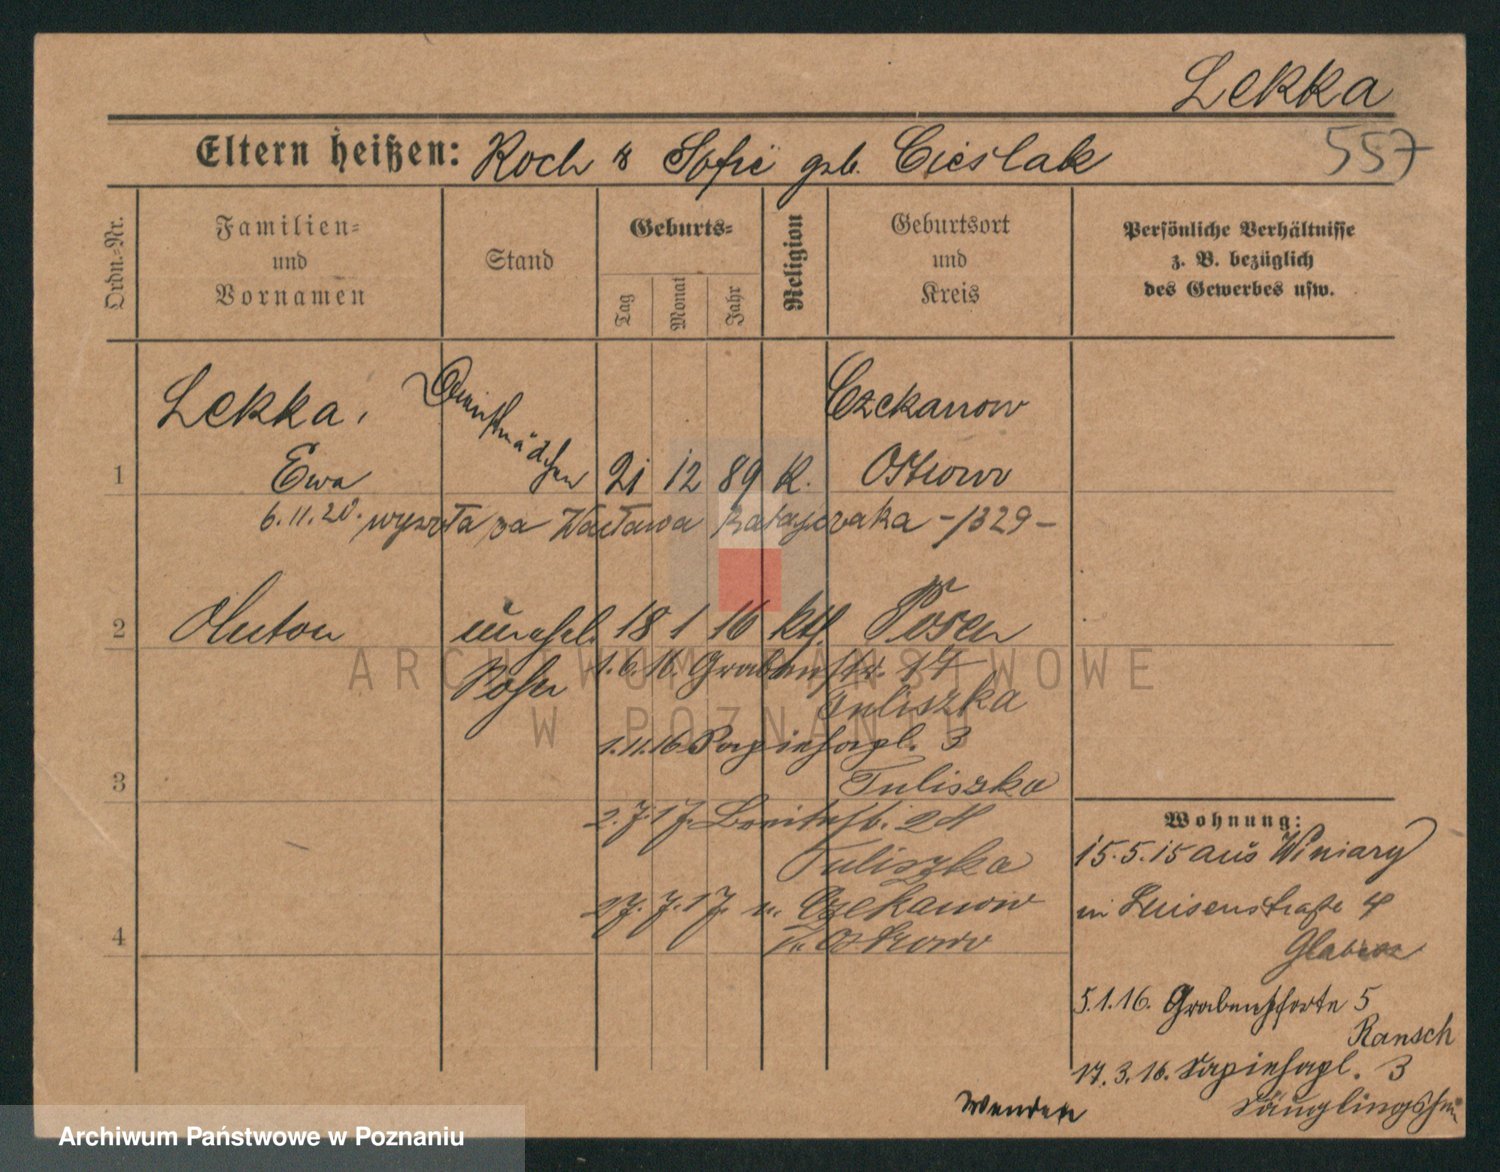 Lekka
557
Eltern heißen: Roch & Sofie geb. Cieslak
Ordn.-Nr.
Familien- und Vornamen
Stand
Geburts-
Tag
Monat
Jahr
Religion
Geburtsort und Kreis
Persönliche Verhältnisse z. B. bezüglich des Gewerbes usw.
Lekka, Dienstmädchen Czekanow
1 Ewa 21 12 89 K. Ostrowo
6.11.20. wyszła za Wacława Ratajczaka -1329-
2 Anton unehel. 18 1 16 kth Posen
Posen 1.6.16. Grabenstr. 17
Tuliszka
1.11.16. Sapiehapl. 3
3 Tuliszka
2.7.17. Breitestr. 24
Tuliszka
27.7.17. n. Czekanow
4 Ostrowo
Wohnung:
15.5.15 aus Winiary
in Luisenstraße 4
5.1.16. Grabenpforte 5
Ransch
17.3.16. Sapiehapl. 3
Säuglingsheim
Wenden
ARCHIWUM PAŃSTWOWE
W POZNANIU
Archiwum Państwowe w Poznaniu